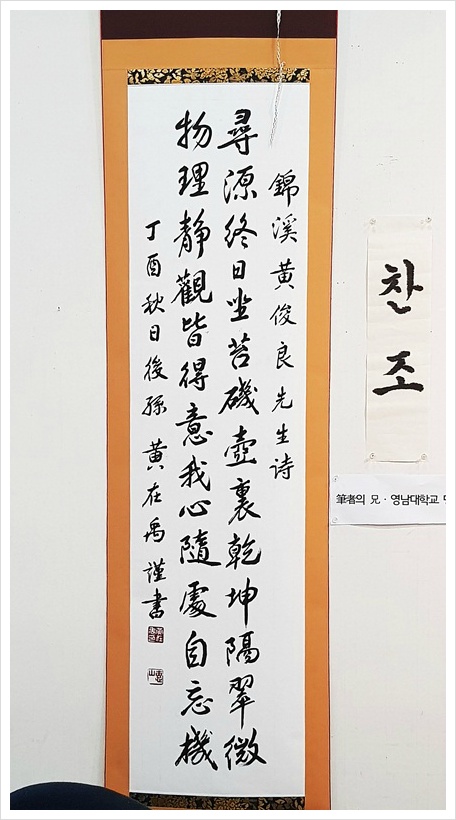 錦溪黃俊良先生詩
尋源終日坐苔磯壺裏乾坤隔翠微
物理靜觀皆得意我心隨處自忘機
丁酉秋日後孫 黃在禹 謹書
찬조
筆者의 兄 · 영남대학교